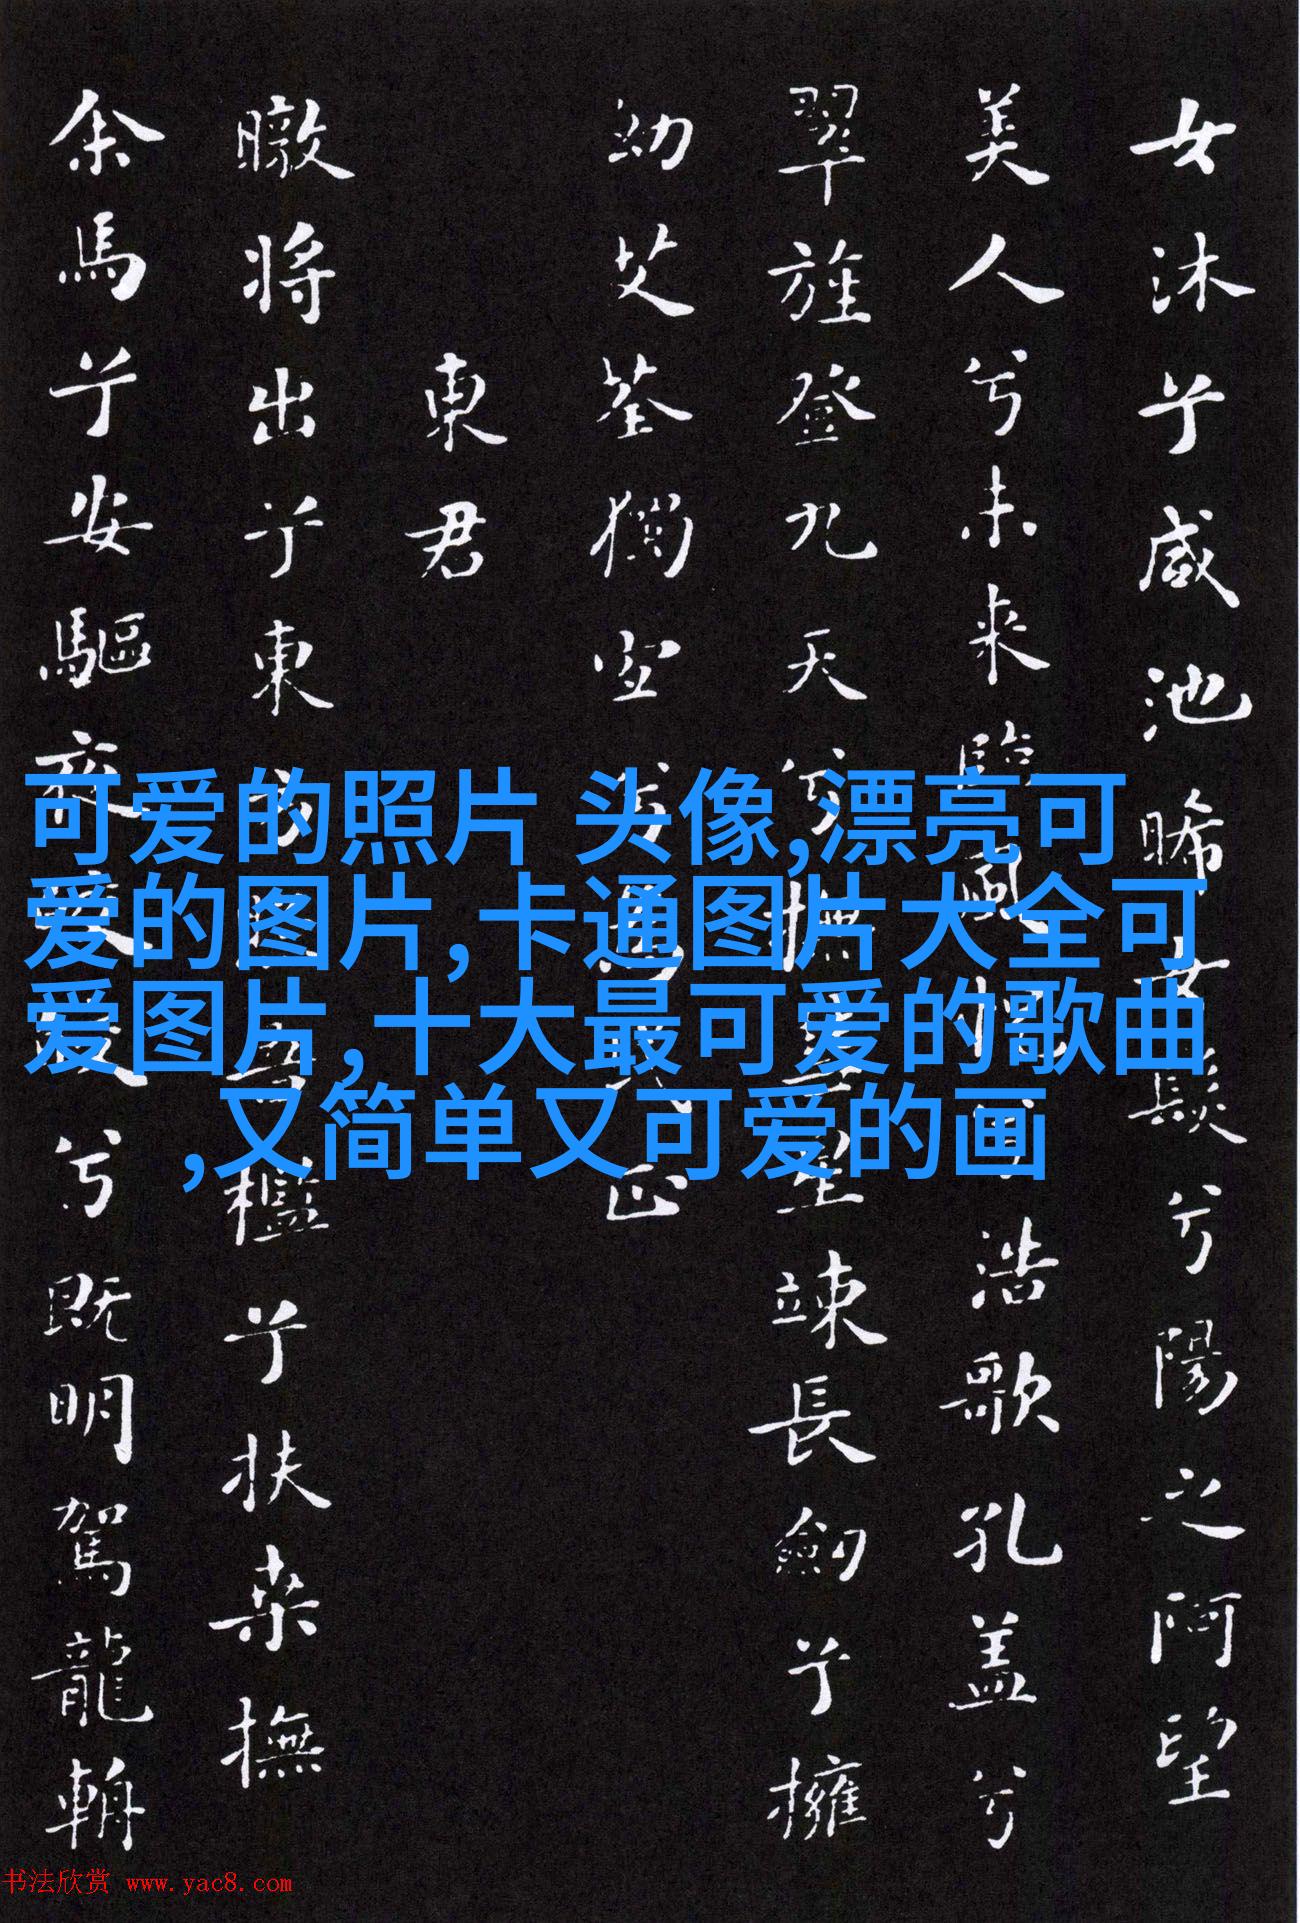 女沐兮咸池晞女髮兮陽之阿望
美人兮未来臨風怳兮浩歌孔盖兮
翠旌登九天兮撫彗星竦長劍兮擁
幼艾荃獨宜兮為民正
東君
暾將出兮東方照吾檻兮扶桑撫
余馬兮安驅夜皎皎兮既明駕龍輈
可爱的照片 头像,漂亮可
爱的图片,卡通图片大全可
爱图片,十大最可爱的歌曲
,又简单又可爱的画
书法欣赏 www.yac8.com